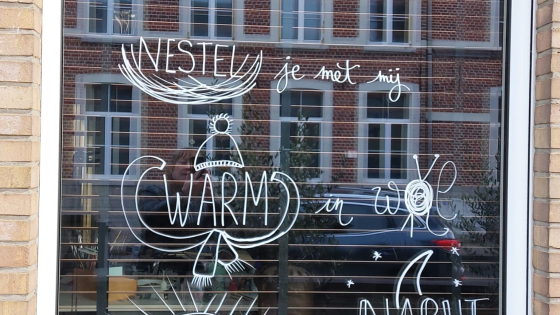 NESTEL je met mij
WARM in wol